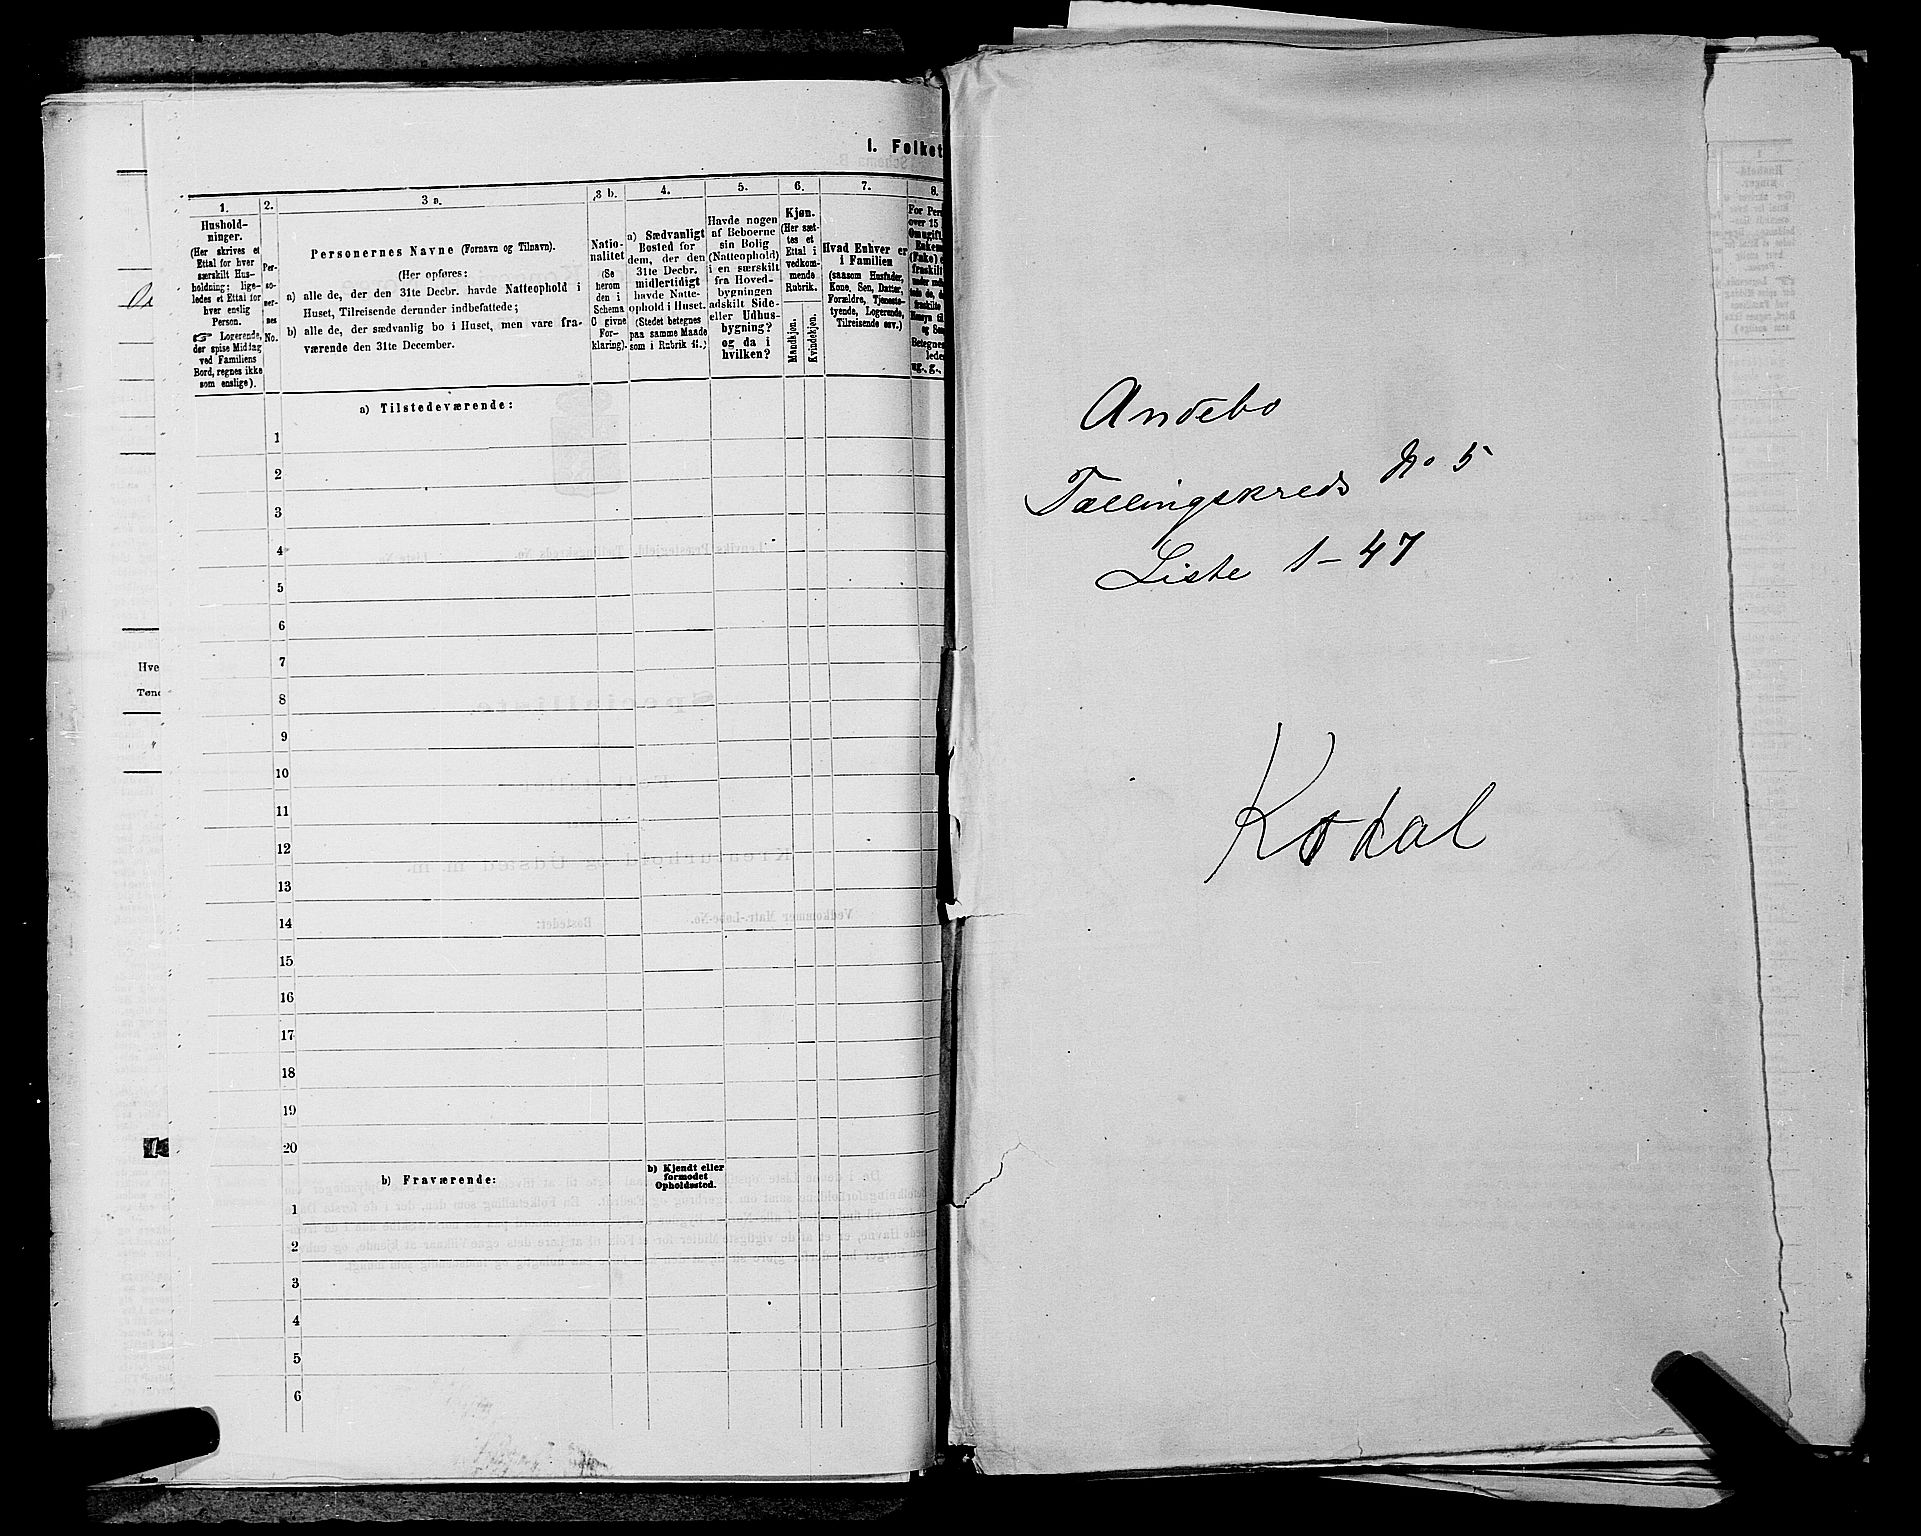 I. Folket
1.
2.
3 a.
3 b.
4.
5.
6.
7.
8.
Hushold-
ninger.
(Her skrives et
Ettal for hver
særskilt Hus-
holdning; lige-
ledes et Ettal for
hver enslig
Person.
☞ Logerende,
der spise Middag
ved Familiens
Bord, regnes ikke
som enslige).
Per-
so-
ner-
nes
No.
Personernes Navne (Fornavn og Tilnavn).
(Her opføres:
a) alle de, der den 31te Decbr. havde Natteophold i
Huset, Tilreisende derunder indbefattede;
b) alle de, der sædvanlig bo i Huset, men vare fra-
værende den 31te December.
Natio-
nalitet
(Se
herom
den i
Schema
C givne
For-
klaring).
a) Sædvanligt
Bosted for
dem, der den
31te Decbr.
midlertidigt
havde Natte-
ophold i Huset.
(Stedet betegnes
paa samme Maade
som i Rubrik 11.)
Havde nogen
af Beboerne
sin Bolig
(Natteophold)
i en særskilt
fra Hoved-
bygningen
adskilt Side-
eller Udhus-
bygning?
og da i
hvilken?
Kjøn.
(Her sæt-
tes et
Ettal i
vedkom-
mende
Rubrik.
Mandkjøn.
Kvindekjøn.
Hvad Enhver er
i Familien
(saasom Husfader,
Kone, Søn, Datter,
Forældre, Tjeneste-
tyende, Logerende,
Tilreisende osv.)
For Pers
over 15
ug., g.,
a) Tilstedeværende:
1
2
3
4
5
6
7
8
9
10
11
12
13
14
15
16
17
18
19
20
b) Fraværende:
b) Kjendt eller
formodet
Opholdssted.
1
2
3
4
5
6
Hve
Tønd
Andebo
Tællingskreds No 5
Liste 1-47
Kodal